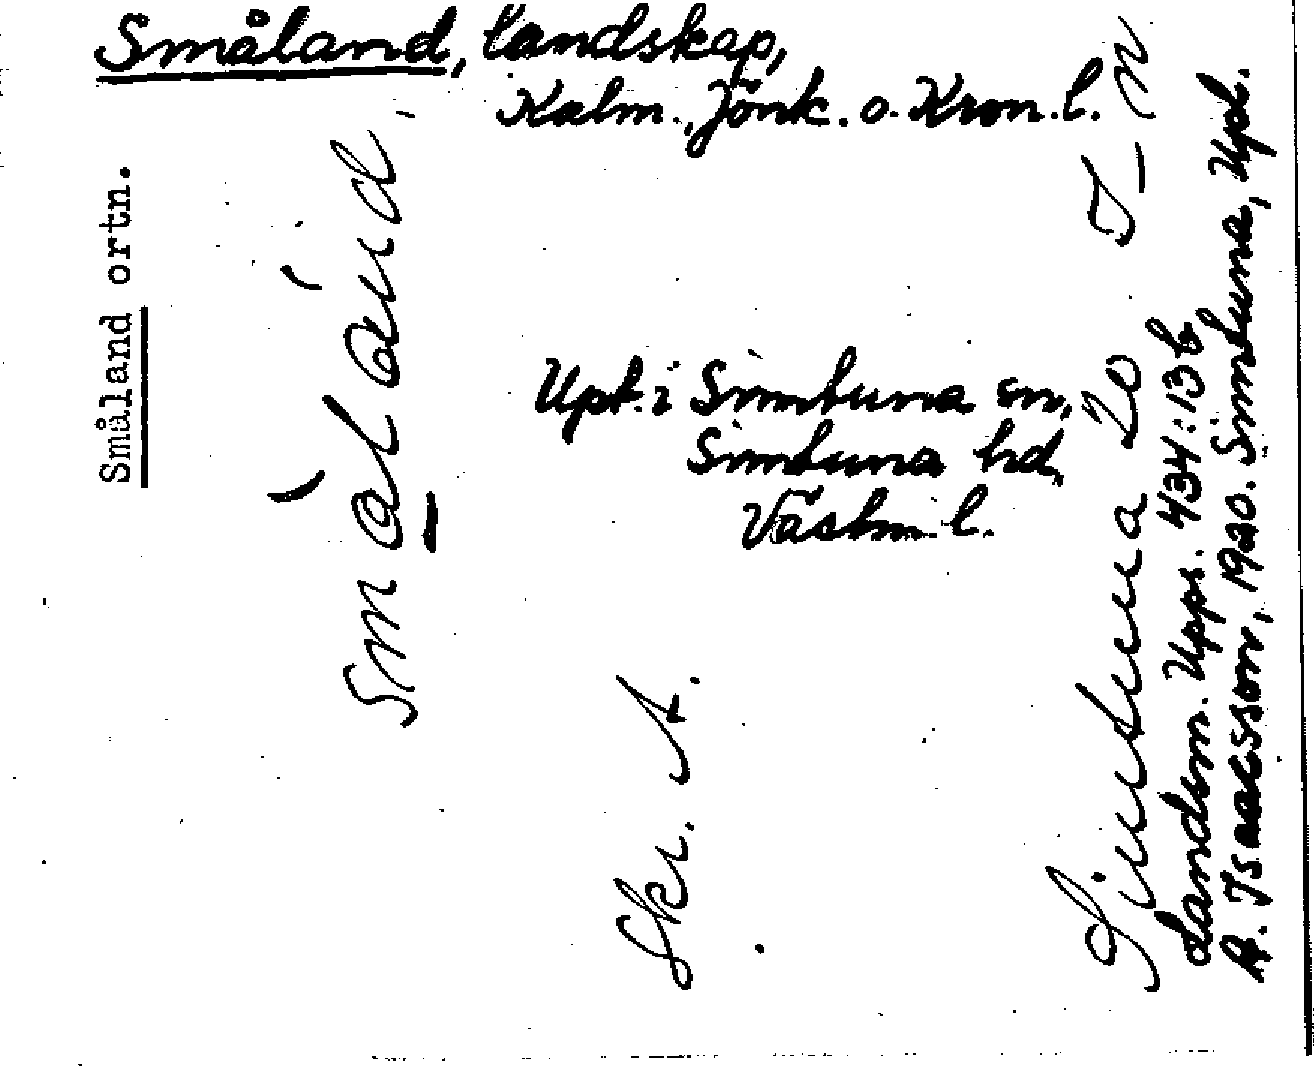 Småland, landskap,
Kalm., Jönk. o. Kron. l.
Småland ortn.
småland,
Uppt. i Simtuna sn,
Simtuna hd,
Västm. l.
Ski. A.
Simtuna 20 I–n
Landsm. Upps. 434:13 b
A. Isacsson, 1920. Simtuna, Upl.